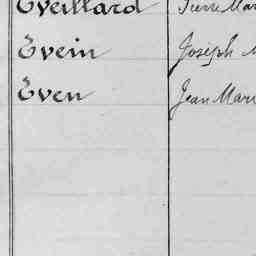 Eveillard Pierre Mar
Evein Joseph
Even Jean Mari